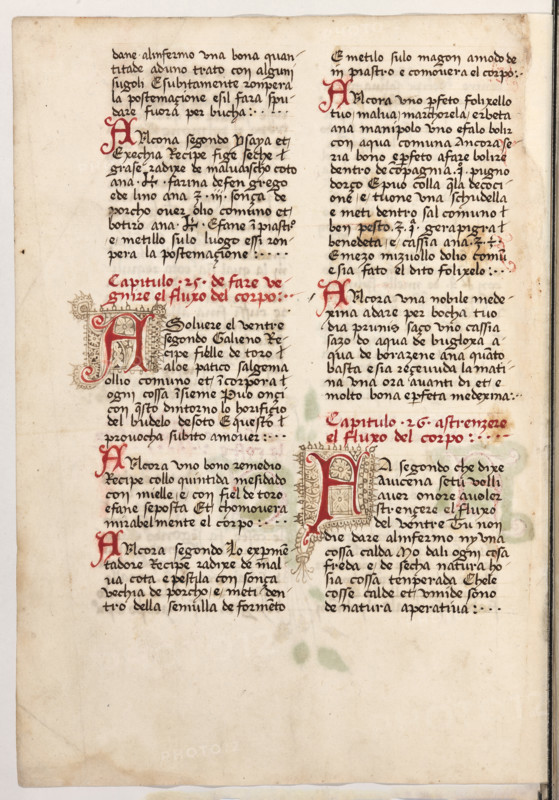 dane alinfermo vna bona quan-
titade aduno trato con alguni
sugoli Esubitamente ronpera
la postemaçione esil fara spu-
dare fuora per bucha : · · · ·
Alcora segondo ysaya et
Exechia Recipe fige seche
grase radixe de maluavischo coto
ana · farina defen grego
ede lino ana ʒ · iij · sonça de
porcho ouer olio comuno et
botiro ana · Efane
e metillo sullo luogo essi ron-
pera la postemaçione : · · · ·
Capitulo · 25 · de fare ve-
gnire el fluxo del corpo : ·
A Soluere el ventre
segondo Galieno Re-
cipe fielle de toro
aloe patico salgema
ollio comuno et incorpora
ogni cossa insieme Puo onçi
con questo dintorno lo horificio
del budelo desoto Equesto
prouocha subito amouer : · ·
Alcora vno bono remedio
Recipe collo quintida mesidado
con mielle e con fiel de toro
efane seposta Et chomouera
mirabelmente el corpo : · · · ·
Alcora segondo Lo exprime
tadore Recipe radixe de mal
ua cota e pestila con sonça
vechia de porcho e meti den-
tro della semulla de formento
E metilo sulo magon amodo de
in piastro e comouera el corpo : ·
Alcora vno perfeto folixello
tuo malua marchorela erbeta
ana manipolo vno efalo bolir
con aqua comuna Ancora se-
ria bono e perfeto afare bolire
dentro de conpagnia · pugno
dorço Epuo colla quella decoci-
one e tuone vna schudella
e meti dentro sal comuno
ben pesto · ʒ · gerapigra
benedeta e cassia ana · ʒ ·
E mezo mizuollo dolio comun
e sia fato el dito folixelo : · ·
Alcora vna nobile mede-
xina adare per bocha tuo
dia prunis saço vno cassia
sazo do aqua de bugloxa a-
qua de borazene ana quanto
basta e sia reçeuuda la mati-
na vna ora auanti di et e
molto bona e perfeta medexina : ·
Capitulo · 26 · astrenzere
el fluxo del corpo : · · · ·
A segondo che dixe
Auicena se tu volli
auer onore auoler
strençere el fluxo
del ventre Tu non
die dare alinfermo nyuna
cossa calda Mo dali ogni cosa
freda e de secha natura ho-
sia cossa temperada Chele
cosse calde et vmide sono
de natura aperatiua : · · ·